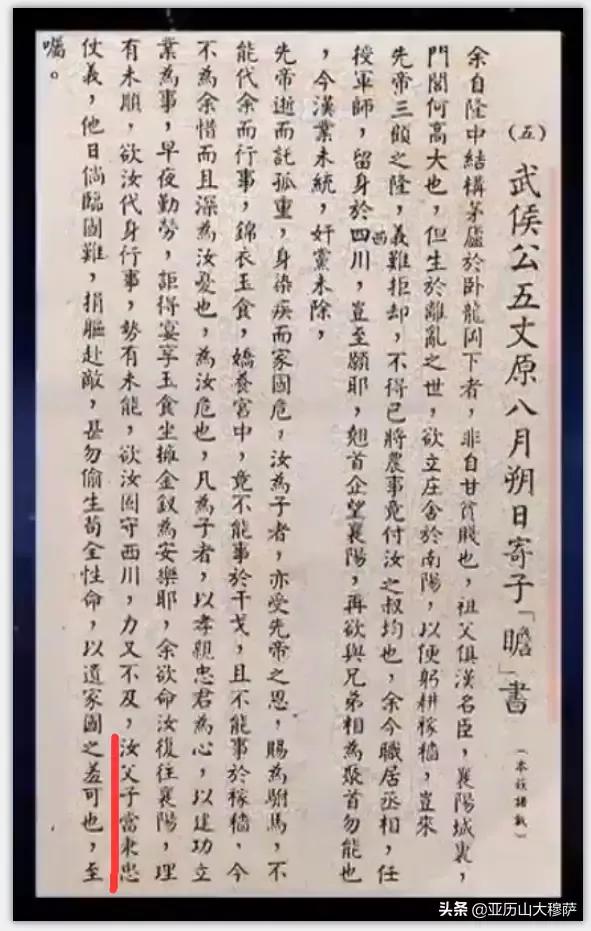 （五）武侯公五丈原八月朔日寄子「瞻」書（本族譜載）
余自隆中結構茅廬於臥龍岡下者，非自甘貧賤也，祖父俱漢名臣，襄陽城裏，
門閭何高大也，但生於離亂之世，欲立庄舍於南陽，以便躬耕稼穡，豈來
先帝三顧之隆，義難拒却，不得已將農事竟付汝之叔均也，余今職居丞相，任
授軍師，留身於西四川，豈至願耶，翹首企望襄陽，再欲與兄弟相為聚首勿能也
，今漢業未統，奸黨未除，
先帝逝而託孤重，身染疾而家國危，汝為子者，亦受先帝之恩，賜為駙馬，不
能代余而行事，錦衣玉食，嬌養宮中，竟不能事於干戈，且不能事於稼穡，今
不為余惜而且深為汝憂也，為汝危也，凡為子者，以孝親忠君為心，以建功立
業為事，早夜勤勞，詎得宴享玉食坐擁金釵為安樂耶，余欲命汝復往襄陽，理
有未順，欲汝代身行事，勢有未能，欲汝固守西川，力又不及，汝父子當秉忠
仗義，他日倘臨國難，捐軀赴敵，甚勿偷生苟全性命，以遺家國之羞可也，至
囑。
头条 @亚历山大穆萨